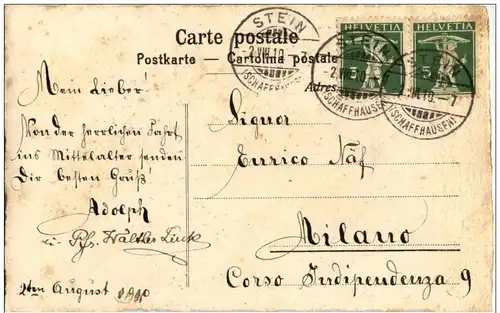 Carte postale
Postkarte — Cartolina postale
STEIN
2.VIII.10.-7
(SCHAFFHAUSEN)
HELVETIA
5
HELVETIA
5
STEIN
2.VIII.10.-7
(SCHAFFHAUSEN)
STEIN
2.VIII.10.-7
(SCHAFFHAUSEN)
Mein Lieber!
Von der herrlichen Fahrt
ins Mittelalter senden
Dir besten Gruß!
Adolph
2ten August 1910
Signor
Enrico Näf
Milano
Corso Indipendenza 9